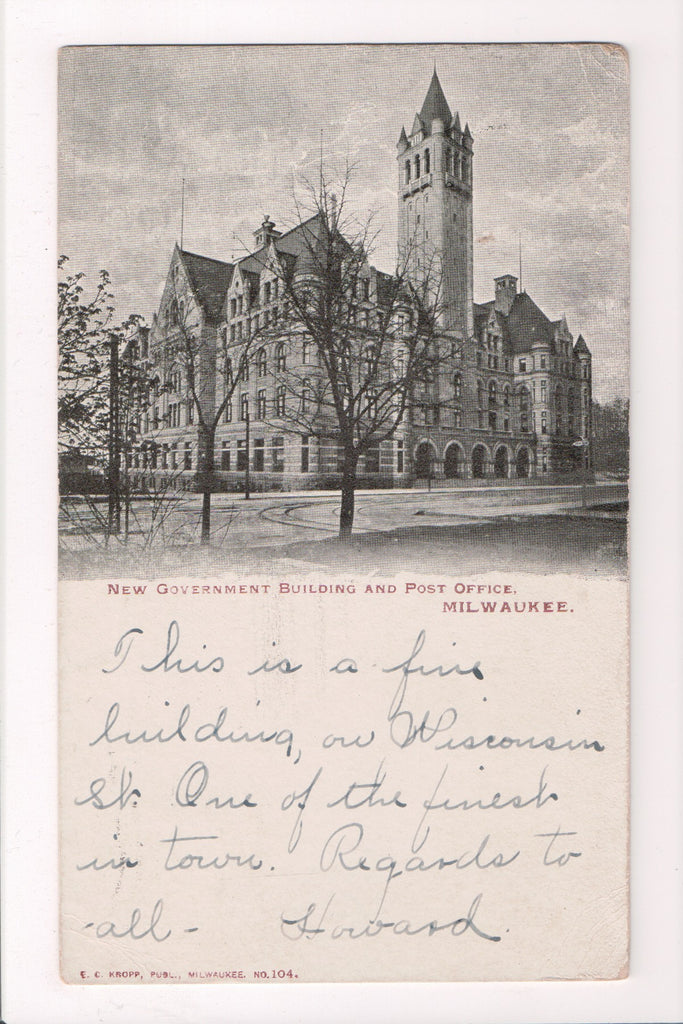 New Government Building and Post Office,
MILWAUKEE.
This is a fine
building, on Wisconsin
St. One of the finest
in town. Regards to
-all- Howard.
E. C. KROPP, PUBL., MILWAUKEE. NO. 104.